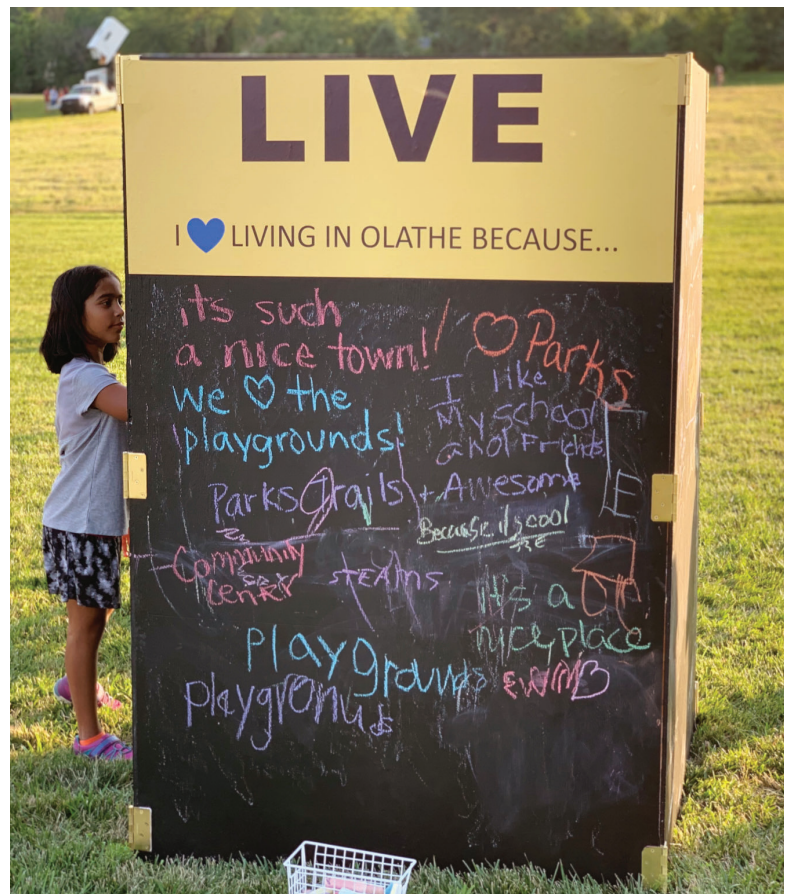 LIVE
I LIVING IN OLATHE BECAUSE...
its such
a nice town!!
Parks
we the
playgrounds!
I like
My school
and Friends
Parks trails + Awesome
Because its cool
Community
Center
STEAMS
it's a
nice place
Playgrounds
playgronuds